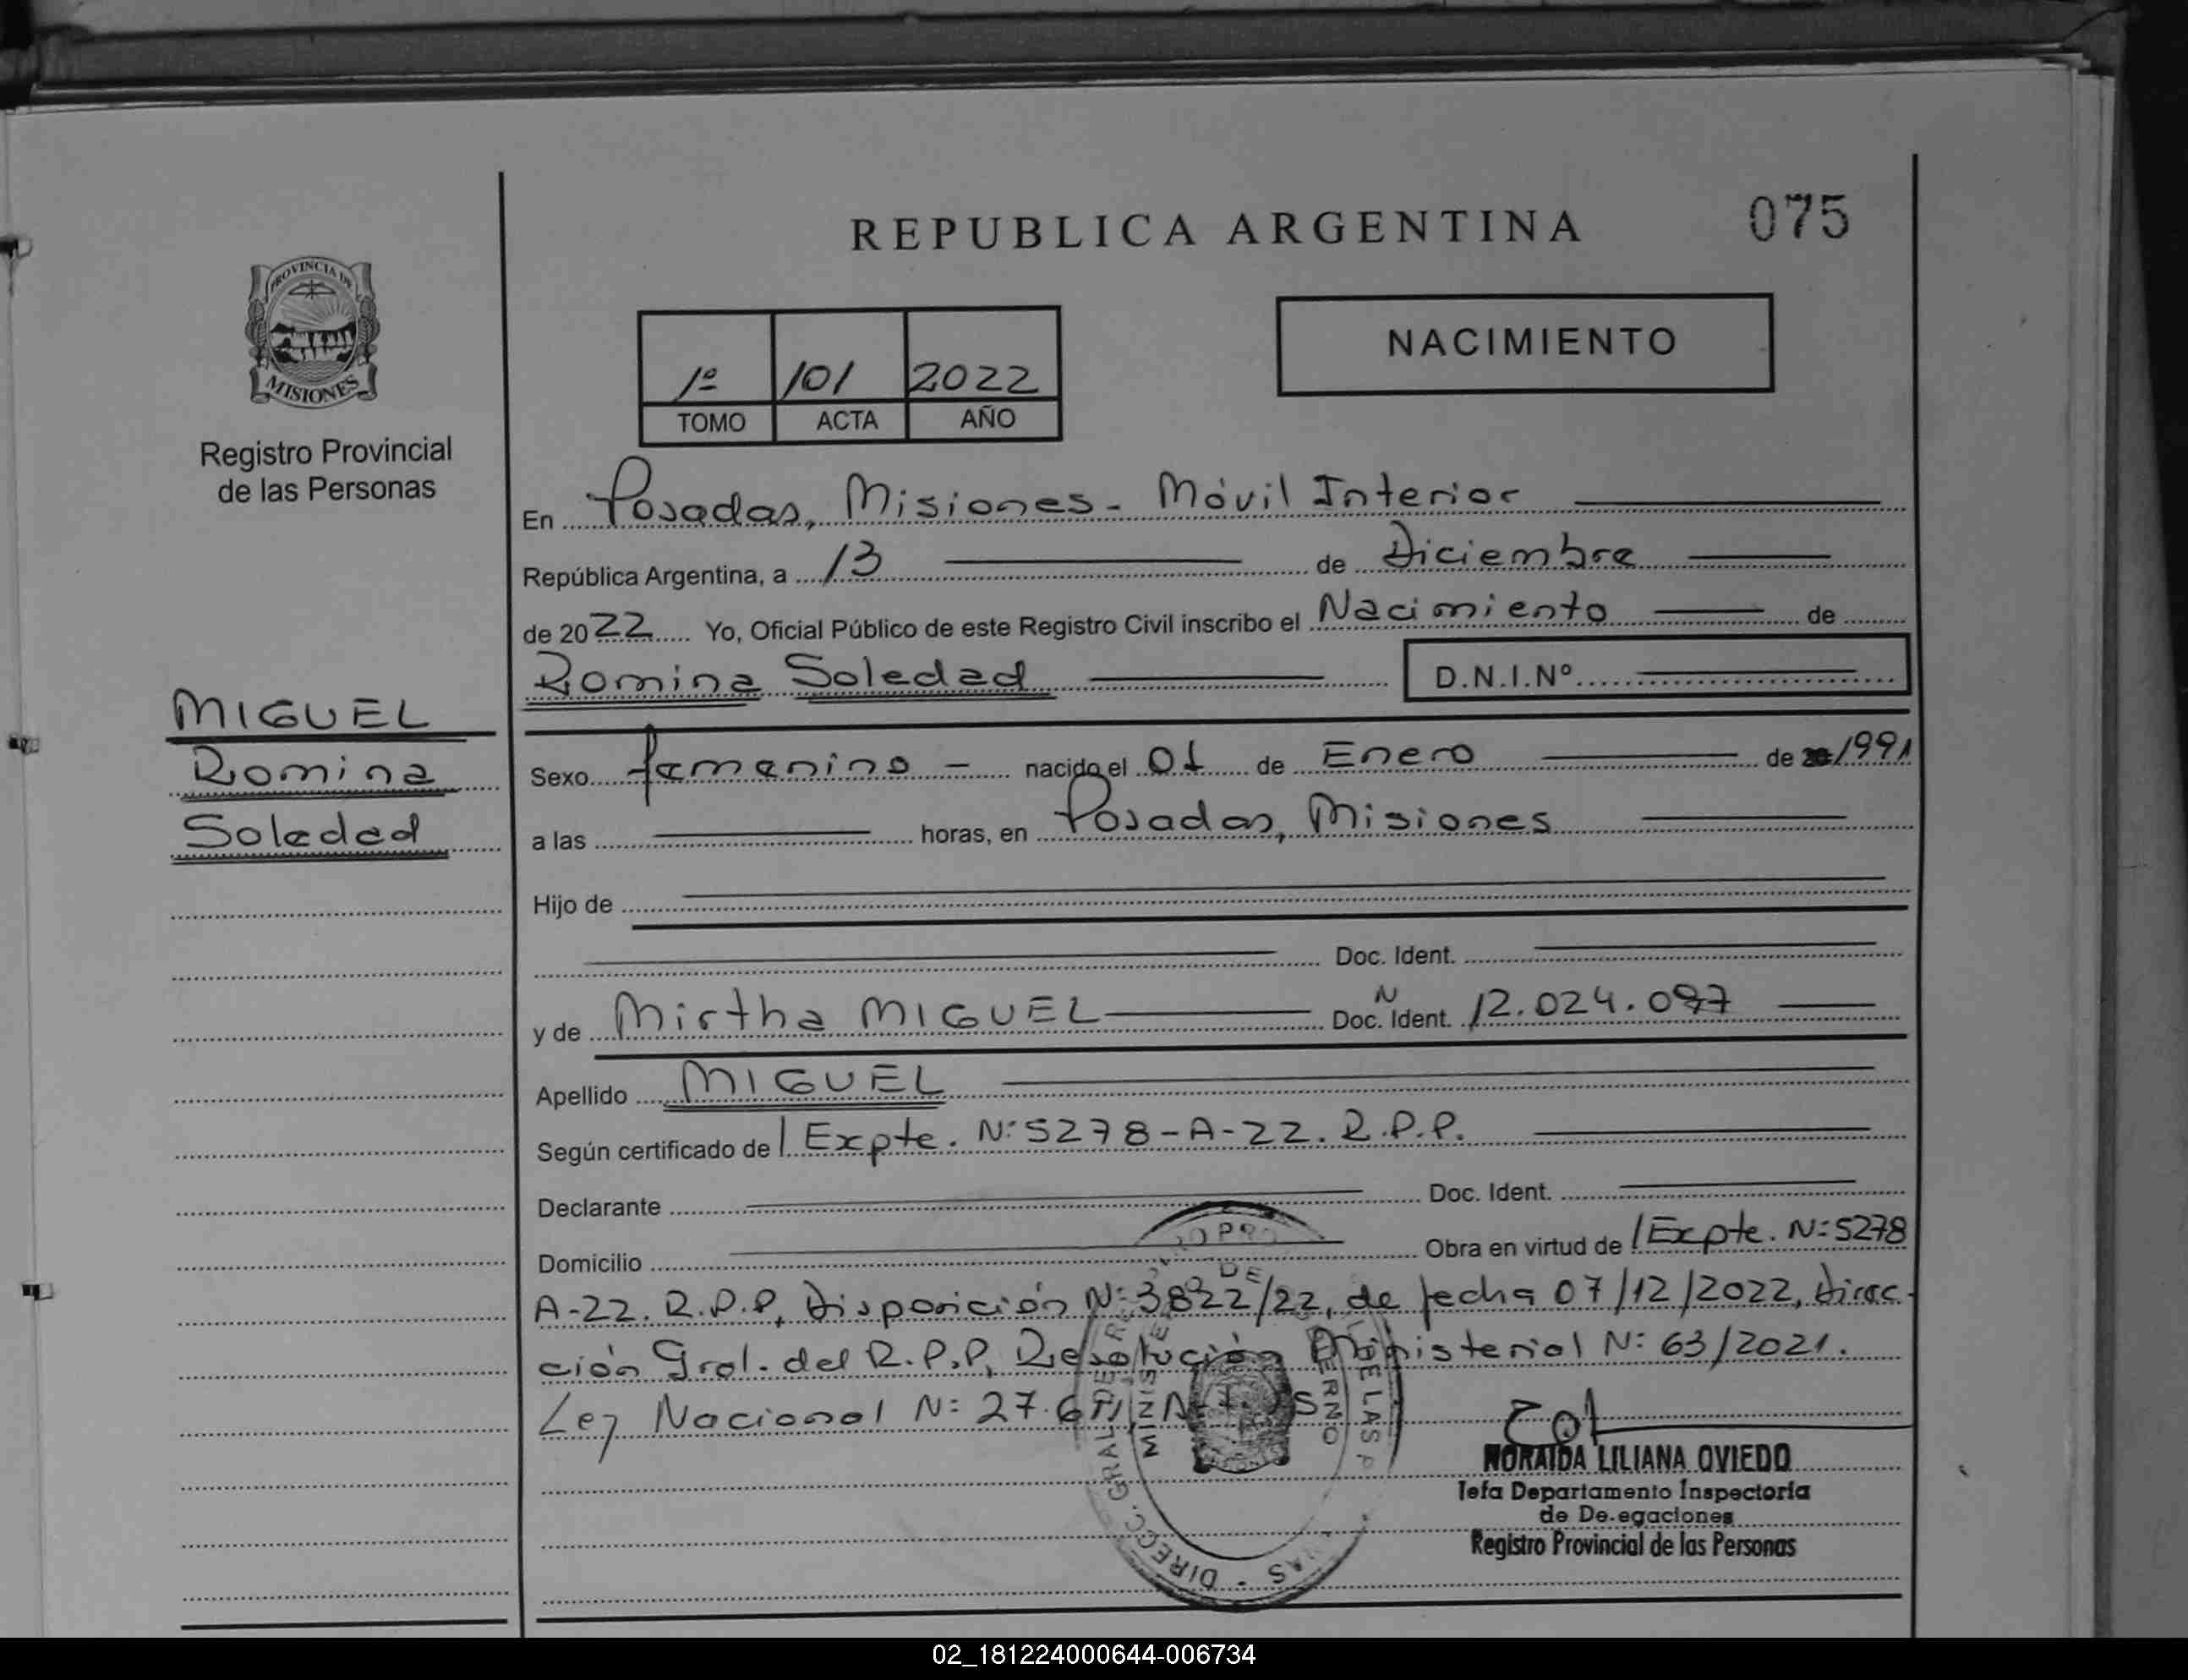 REPUBLICA ARGENTINA
075
PROVINCIA DE
MISIONES
Registro Provincial
de las Personas
NACIMIENTO
1º 101 2022
TOMO ACTA AÑO
En Posadas, Misiones - Móvil Interior
República Argentina, a 13 de Diciembre
de 2022 Yo, Oficial Público de este Registro Civil inscribo el Nacimiento de
Romina Soledad D.N.I.Nº
MIGUEL
Romina
Soledad
Sexo femenino - nacido el 01 de Enero de 1991
a las horas, en Posadas, Misiones
Hijo de
Doc. Ident.
y de Mirtha MIGUEL Doc. Ident. N 12.024.097
Apellido MIGUEL
Según certificado de Expte. N: 5278-A-22. R.P.P.
Declarante Doc. Ident.
Domicilio Obra en virtud de Expte. N: 5278
A-22. R.P.P, Disposición N: 3822/22, de fecha 07/12/2022, Direc-
ción Gral. del R.P.P, Resolución Ministerial N: 63/2021.
Ley Nacional N: 27.611
NORAIDA LILIANA OVIEDO
Jefa Departamento Inspectoría
de De.egaciones
Registro Provincial de las Personas
DIRECC. GRAL DE
02_181224000644-006734